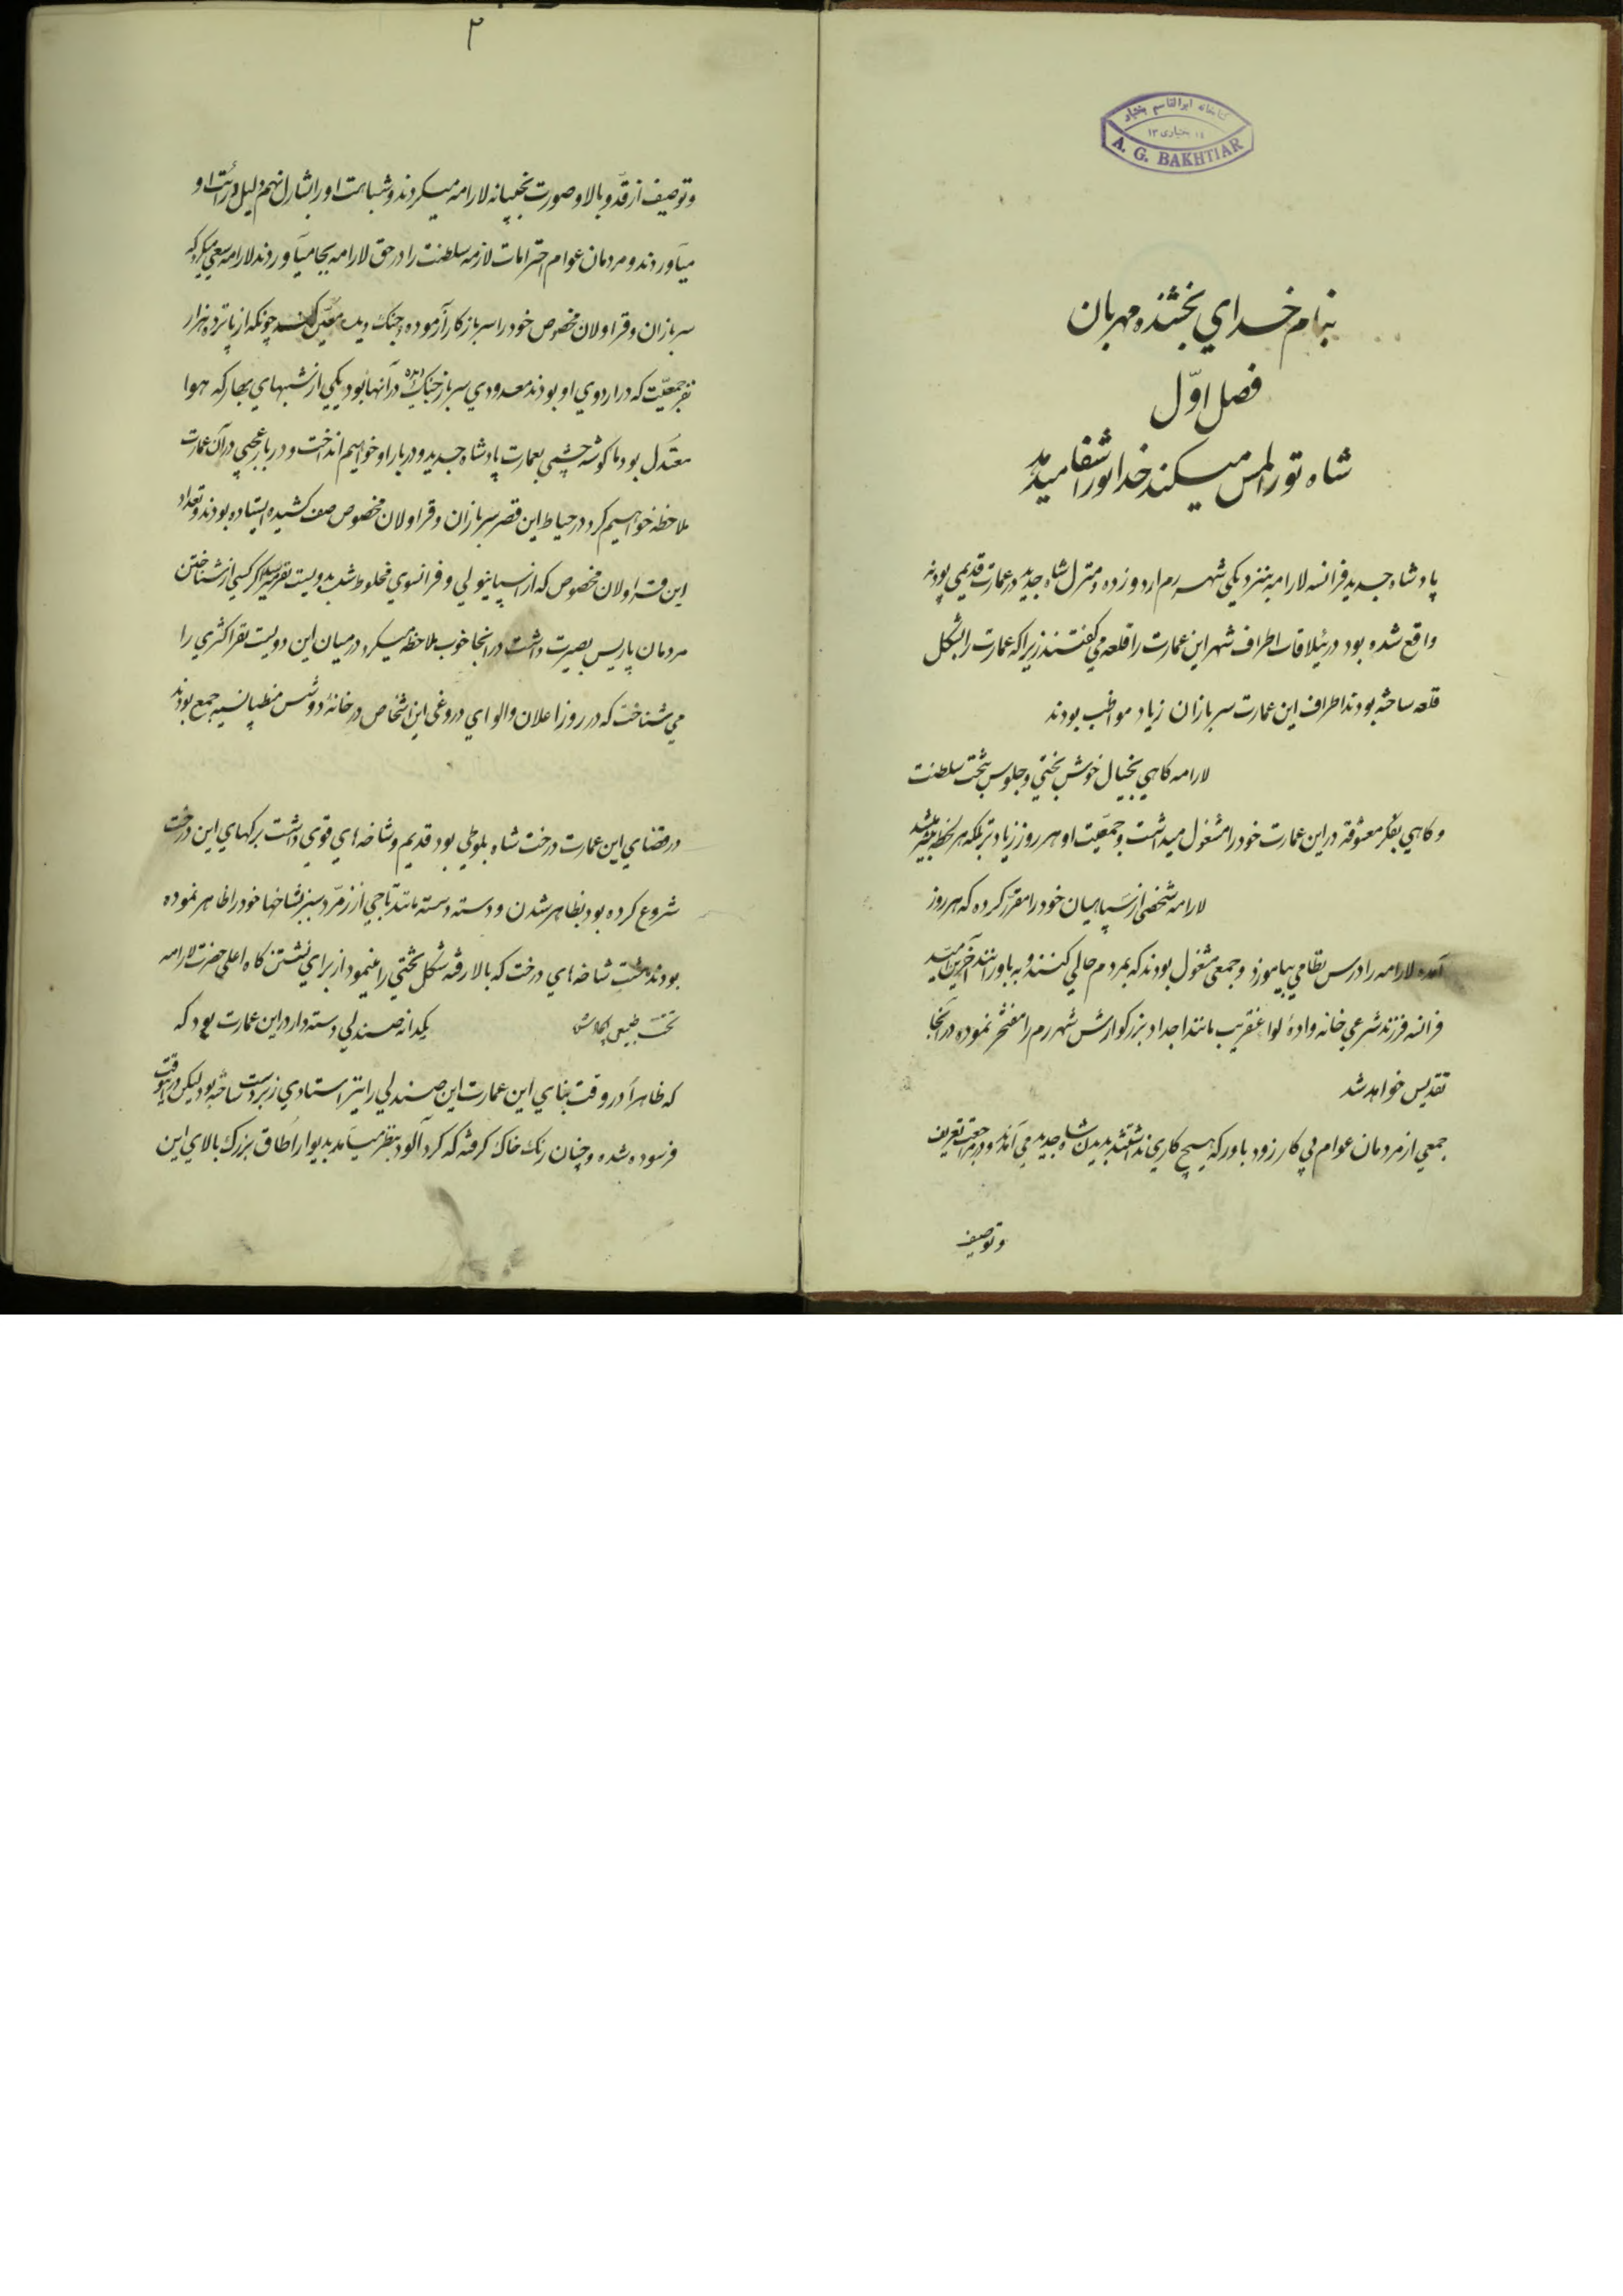 کتابخانه ابوالقاسم بختیار
A. G. BAKHTIAR
بنام خداي بخشنده مهربان
فصل اوّل
شاه تو را لمس میکند خدا تو را شفا میدهد
پادشاه جدید فرانسه لارامه بنزدیکی شهر رم اردو زده و منزل شاه جدید در عمارت قدیمي بود که
واقع شده بود در ئیلاقات اطراف شهر این عمارت را قلعه می گفتند زیرا که عمارت را بشکل
قلعه ساخته بودند اطراف این عمارت سربازان زیاد مواظب بودند
لارامه کاهي بخیال خوش بختي و جلوس بتخت سلطنت
و کاهي بفکر معشوقه در این عمارت خود را مشغول میداشت و جمعیّت او هر روز زیادتر بلکه هر لحظه
لارامه شخصی از سپاهیان خود را مقرّر کرده که هر روز
آمده لارامه را درس نظامي بیاموزد و جمعی مشغول بودند که بمردم حالي کنند و به باور انند آخرین
فرانسه فرزند شرعي خانه واده لوا عنقریب مانند اجداد بزرکوارش شهر رم را مفتخر نموده در آنجا
تقدیس خواهد شد
جمعي از مردمان عوام بي کار زود باور که هیچ کاري نداشتند بدیدن شاه جدید مي آمدند و در مراجعت تعریف
و توصیف
۳
و توصیف از قد و بالا و صورت نجیبانه لارامه میکردند و شباهت او را بشارل نهم دلیل
میآوردند و مردمان عوام احترامات لازمه سلطنت را در حق لارامه بجا میآوردند لارامه سعي میکرد که
سربازان و قراولان مخصوص خود را سرباز کار آزموده و جنک دیده معیّن کند چونکه از پانزده هزار
نفر جمعیّت که در اردوي او بودند معدودي سرباز جنک دیده در آنها بود یکي از شبهاي بهار که هوا
معتدل بود ما کوشه چشمي بعمارت پادشاه جدید و دربار او خواهیم انداخت و دربار عجیبي در آن عمارت
ملاحظه خواهیم کرد در حیاط این قصر سربازان و قراولان مخصوص صف کشیده ایستاده بودند و تعداد
این قراولان مخصوص که از اسپانیولي و فرانسوي مخلوط شده بدویست نفر میرسید اکر کسي از شناختن
مردمان پاریس بصیرت داشت در انجا خوب ملاحظه میکرد در میان این دویست نفر اکثري را
مي شناخت که در روز اعلان والواي دروغي این اشخاص در خانهٔ دوشس منطپانسیه جمع بودند
در فضاي این عمارت درخت شاه بلوطي بود قدیم و شاخه هاي قوي داشت برکهاي این درخت
شروع کرده بود بظاهر شدن و دسته دسته مانند تاجي از زمرّد سبز بشاخها خود را ظاهر نموده
بودند شاخه هاي درخت که بالا رفته شکل تختي را مینمود از براي نشستن کاه اعلي حضرت لارامه
یکدانه صندلي دسته دار در این عمارت بود که
که ظاهراً در وقت بناي این عمارت این صندلي را نیز استادي زبردست ساخته بود لیکن در این وقت
فرسوده شده و چنان رنک خاک کرفته که کرد آلود بنظر میآمد بدیوار اطاق بزرک بالاي این